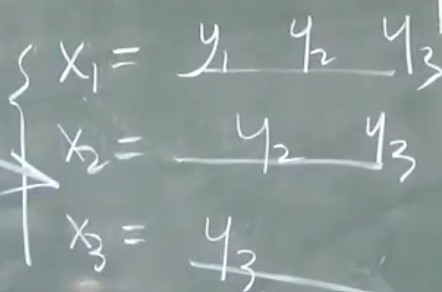 x₁ = y₁ y₂ y₃
x₂ = y₂ y₃
x₃ = y₃